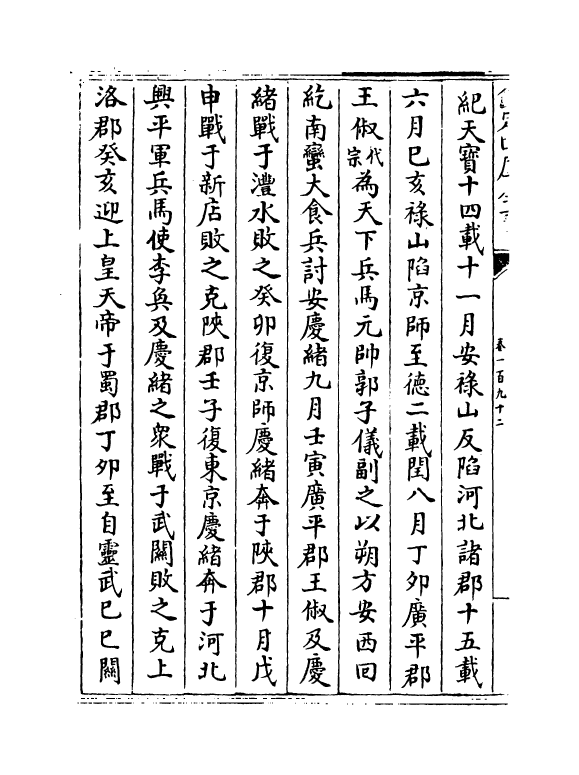 紀天寶十四載十一月安祿山反陷河北諸郡十五載
六月巳亥祿山陷京師至徳二載閏八月丁夘廣平郡
王俶代宗為天下兵馬元帥郭子儀副之以朔方安西囘
紇南蠻大食兵討安慶緒九月壬寅廣平郡王俶及慶
緒戰于灃水敗之癸卯復京師慶緒奔于陜郡十月戊
申戰于新店敗之克陜郡壬子復東京慶緒奔于河北
興平軍兵馬使李奐及慶緒之衆戰于武關敗之克上
洛郡癸亥迎上皇天帝于蜀郡丁夘至自靈武巳巳關
卷一百九十二